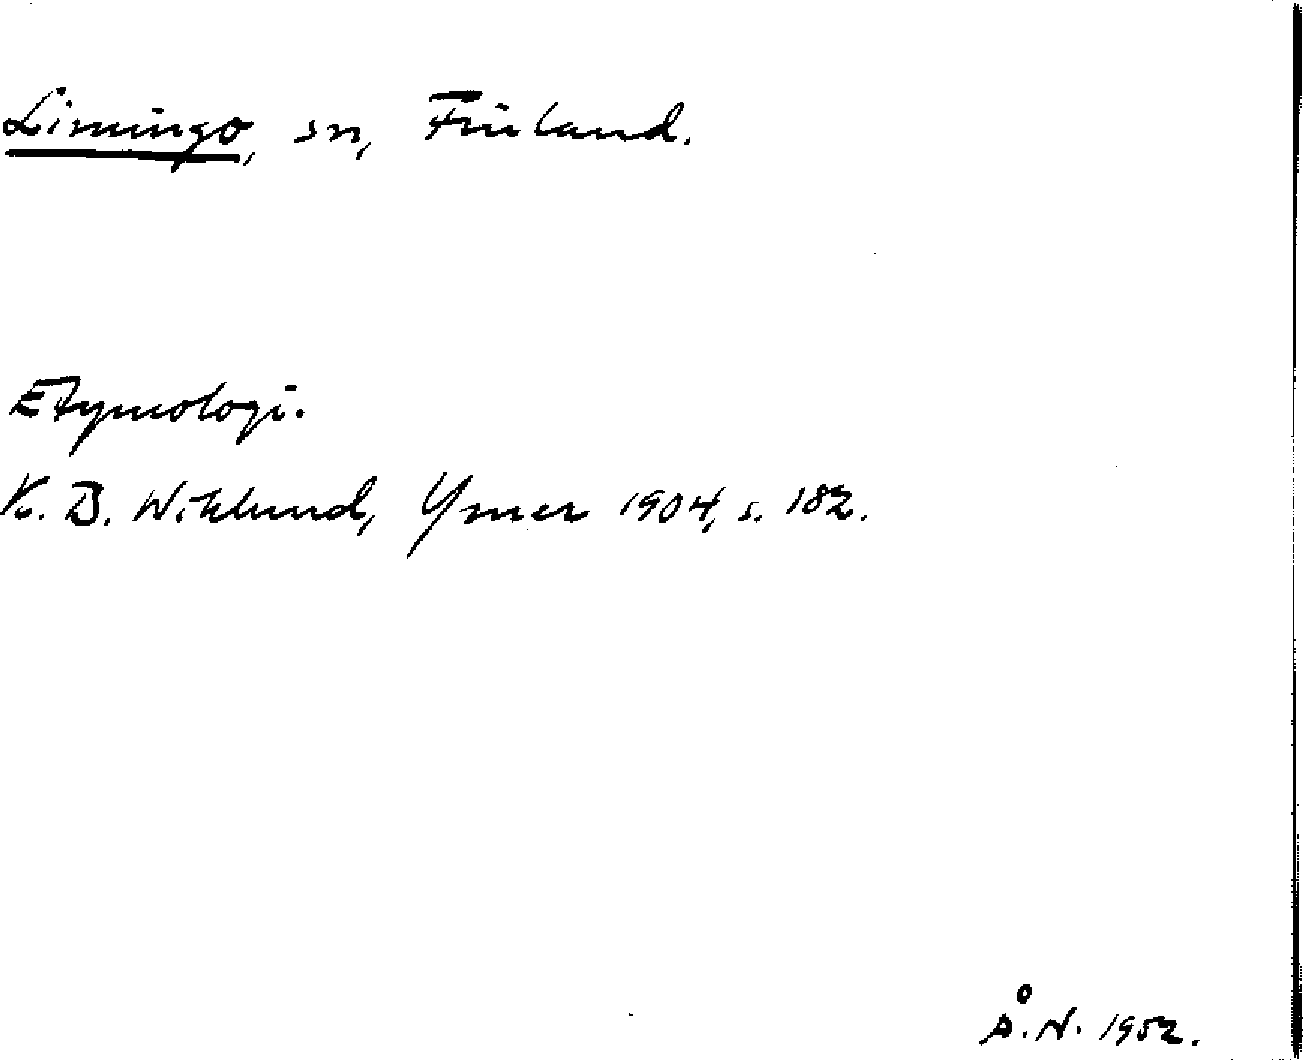 Limingo, sn, Finland.
Etymologi.
K. B. Wiklund, Ymer 1904, s. 182.
Å. N. 1952.